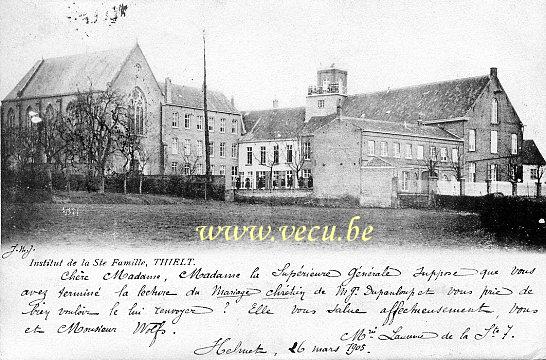 www.vecu.be
Institut de la Ste Famille, THIELT.
Chère Madame, Madame la Supérieure Générale suppose que vous
avez terminé la lecture du Mariage chrétien de Mgr Dupanloup et vous prie de
vouloir le lui renvoyer ? Elle vous salue affectueusement, vous
et Monsieur
Laurence de la Ste F.
Helmet, 26 mars 1905